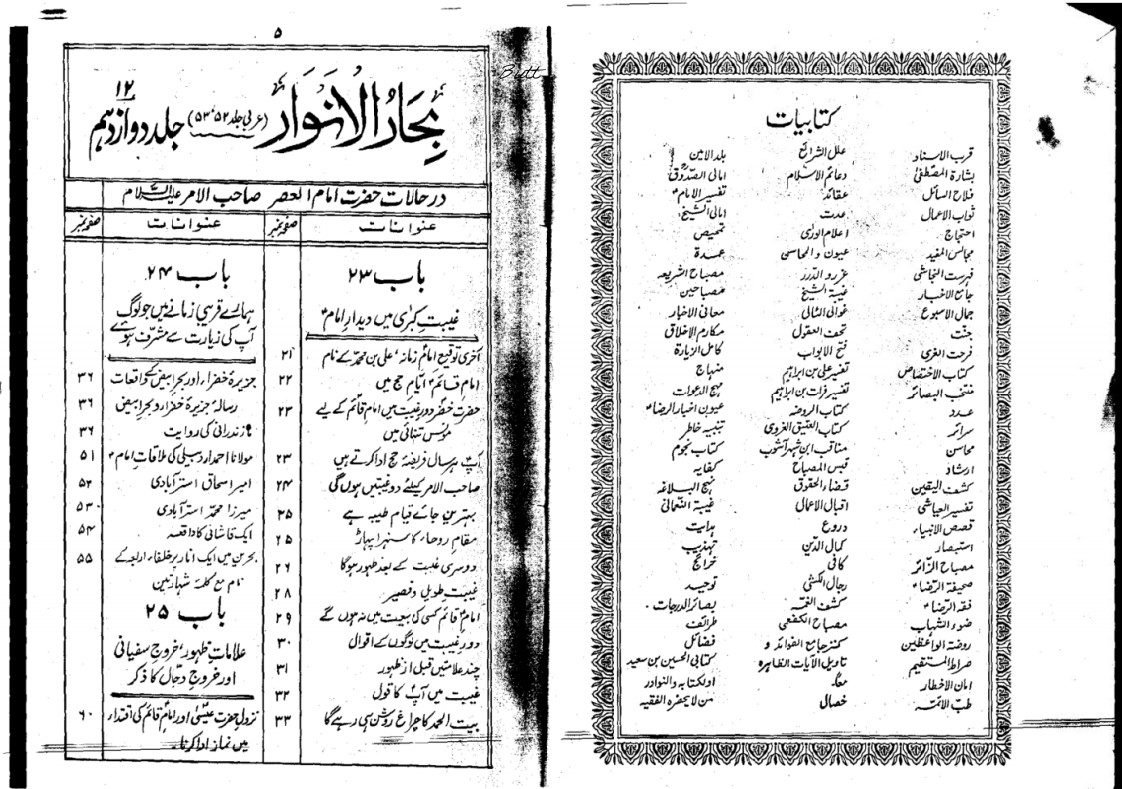 کتابیات
قرب الاسناد
بشارة المصطفیٰ
فلاح السائل
ثواب الاعمال
احتجاج
مجالس المفید
فہرست النجاشی
جامع الاخبار
جمال الاسبوع
جنت
فرحت الغری
کتاب الاختصاص
منتخب البصائر
عدد
سرائر
محاسن
ارشاد
کشف الیقین
تفسیر العیاشی
قصص الانبیاء
استبصار
مصباح الزائر
صحیفة الرضاؑ
فقہ الرضاؑ
ضوء الشہاب
روضة الواعظین
صراط المستقیم
امان الاخطار
طب الائمہ
علل الشرائع
دعائم الاسلام
عقائد
عدت
اعلام الوریٰ
عیون و المحاسن
غرر و الدرر
غیبة الشیخ
غوالی اللئالی
تحف العقول
فتح الابواب
تفسیر علی بن ابراہیم
تفسیر فرات بن ابراہیم
کتاب الروضہ
کتاب العتیق الغروی
مناقب ابن شہر آشوب
قبس المصباح
قضاء الحقوق
اقبال الاعمال
دروع
کمال الدین
کافی
رجال الکشی
کشف الغمہ
مصباح الکفعمی
کنز جامع الفوائد و
تاویل الآیات الظاہرہ
خصال
بلد الامین
امالی الصدوق
تفسیر الامامؑ
امالی الشیخ
تمحیص
عمدة
مصباح الشریعہ
مصباحین
معانی الاخبار
مکارم الاخلاق
کامل الزیارة
منہاج
مہج الدعوات
عیون اخبار الرضاؑ
تنبیہ خاطر
کتاب نجوم
کفایہ
نہج البلاغہ
غیبة النعمانی
ہدایت
تہذیب
خرائج
توحید
بصائر الدرجات
طرائف
فضائل
کتابی الحسین بن سعید
او لکتابہ والنوادر
من لا یحضرہ الفقیہ
۵
Butt
بحار الانوار (عربی جلد ۵۲، ۵۳) جلد دوازدہم ۱۲
در حالات حضرت امام العصر صاحب الامر علیہ السلام
عنوانات صفحہ نمبر
باب ۲۳
غیبتِ کبریٰ میں دیدارِ امامؑ
آخری توقیع امامِ زمانہؑ علی بن محمد کے نام ۲۱
امام قائمؑ ایامِ حج میں ۲۲
حضرت خضر دورِ غیبت میں امام قائم کے لیے ۲۳
مونسِ تنہائی ہیں
آپ ہر سال فریضۂ حج ادا کرتے ہیں ۲۳
صاحب الامر کیلئے دو غیبتیں ہوں گی ۲۴
بہترین جائے قیام طیبہ ہے ۲۵
مقامِ روحاء کا سنہرا پہاڑ ۲۵
دوسری غیبت کے بعد ظہور ہوگا ۲۶
غیبتِ طویل و قصیر ۲۸
امام قائم کسی کی بیعت میں نہ ہوں گے ۲۹
دورِ غیبت میں لوگوں کے اقوال ۳۰
چند علامتیں قبل از ظہور ۳۱
غیبت میں آپ کا قول ۳۲
بیت الحمد کا چراغ روشن ہی رہے گا ۳۳
عنوانات صفحہ نمبر
باب ۲۴
ہمارے قریبی زمانے میں جو لوگ
آپ کی زیارت سے مشرف ہوئے
جزیرۂ خضراء اور بحر ابیض کے واقعات ۳۶
رسالۂ جزیرۂ خضراء و بحر ابیض ۳۶
مازندرانی کی روایت ۳۶
مولانا احمد اردبیلی کی ملاقاتِ امامؑ ۵۱
امیر اسحاق استرآبادی ۵۲
میرزا محمد استرآبادی ۵۳
ایک قاشانی کا واقعہ ۵۴
بحرین میں ایک انار پر خلفاء اربعہ کے ۵۵
نام مع کلمۂ شہادتین
باب ۲۵
علاماتِ ظہور، خروجِ سفیانی
اور خروجِ دجّال کا ذکر
نزولِ حضرت عیسیٰ اور امام قائم کی اقتداء ۶۰
میں نماز ادا کرنا